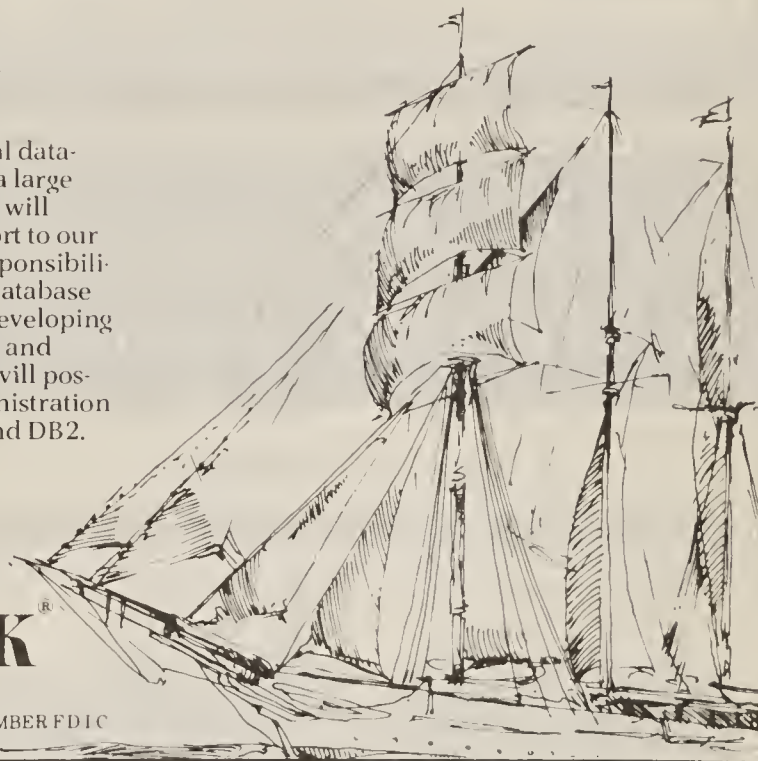 al data-
a large
will
rt to our
ponsibili-
atabase
eveloping
and
will pos-
nistration
nd DB2.
K®
MBER FDIC